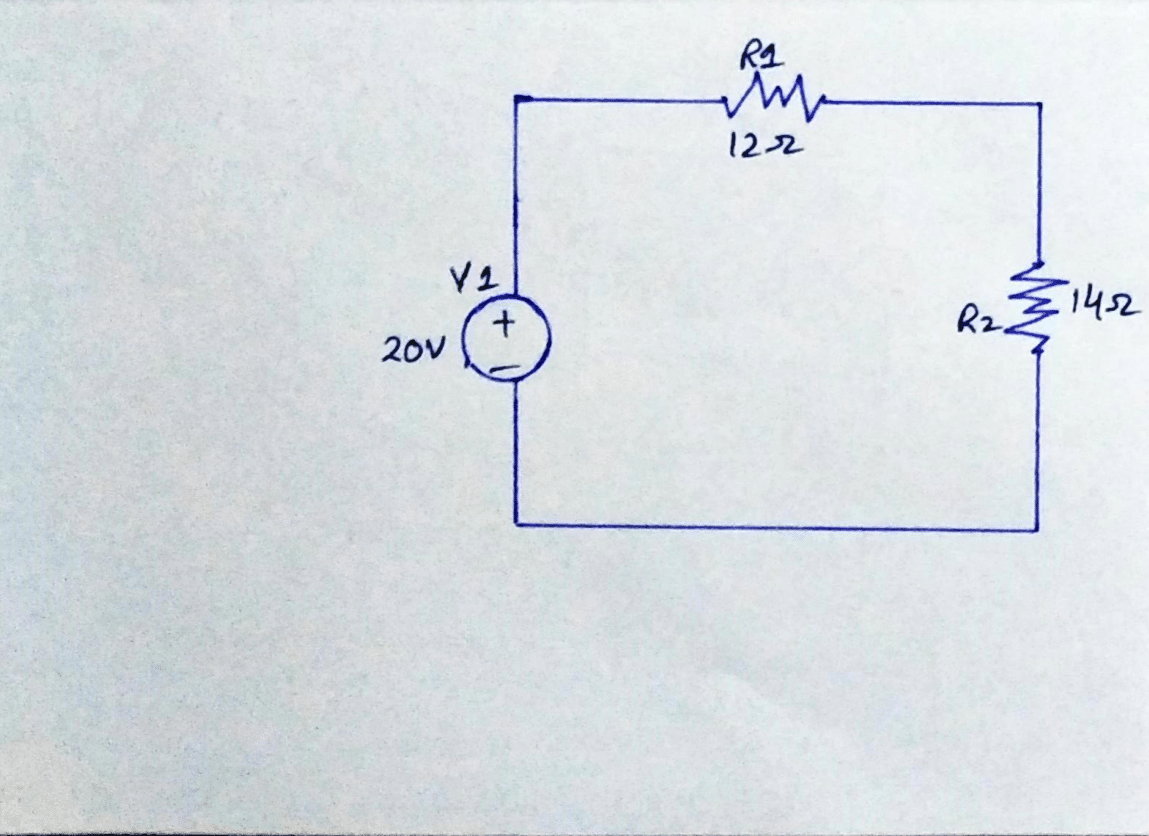 R1
12Ω
V1
+
20V
−
R2
14Ω